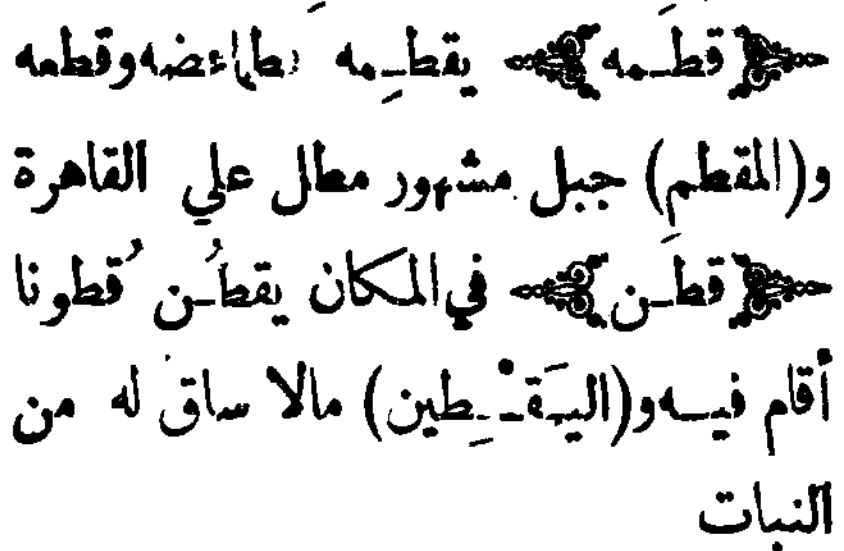 ﴿قطَمه﴾ يقطِمه قطما عضه وقطعه
و(المقطم) جبل مشهور مطل علي القاهرة
﴿قطَن﴾ في المكان يقطُن قُطونا
أقام فيه و(اليَقْطِين) مالا ساق له من
النبات